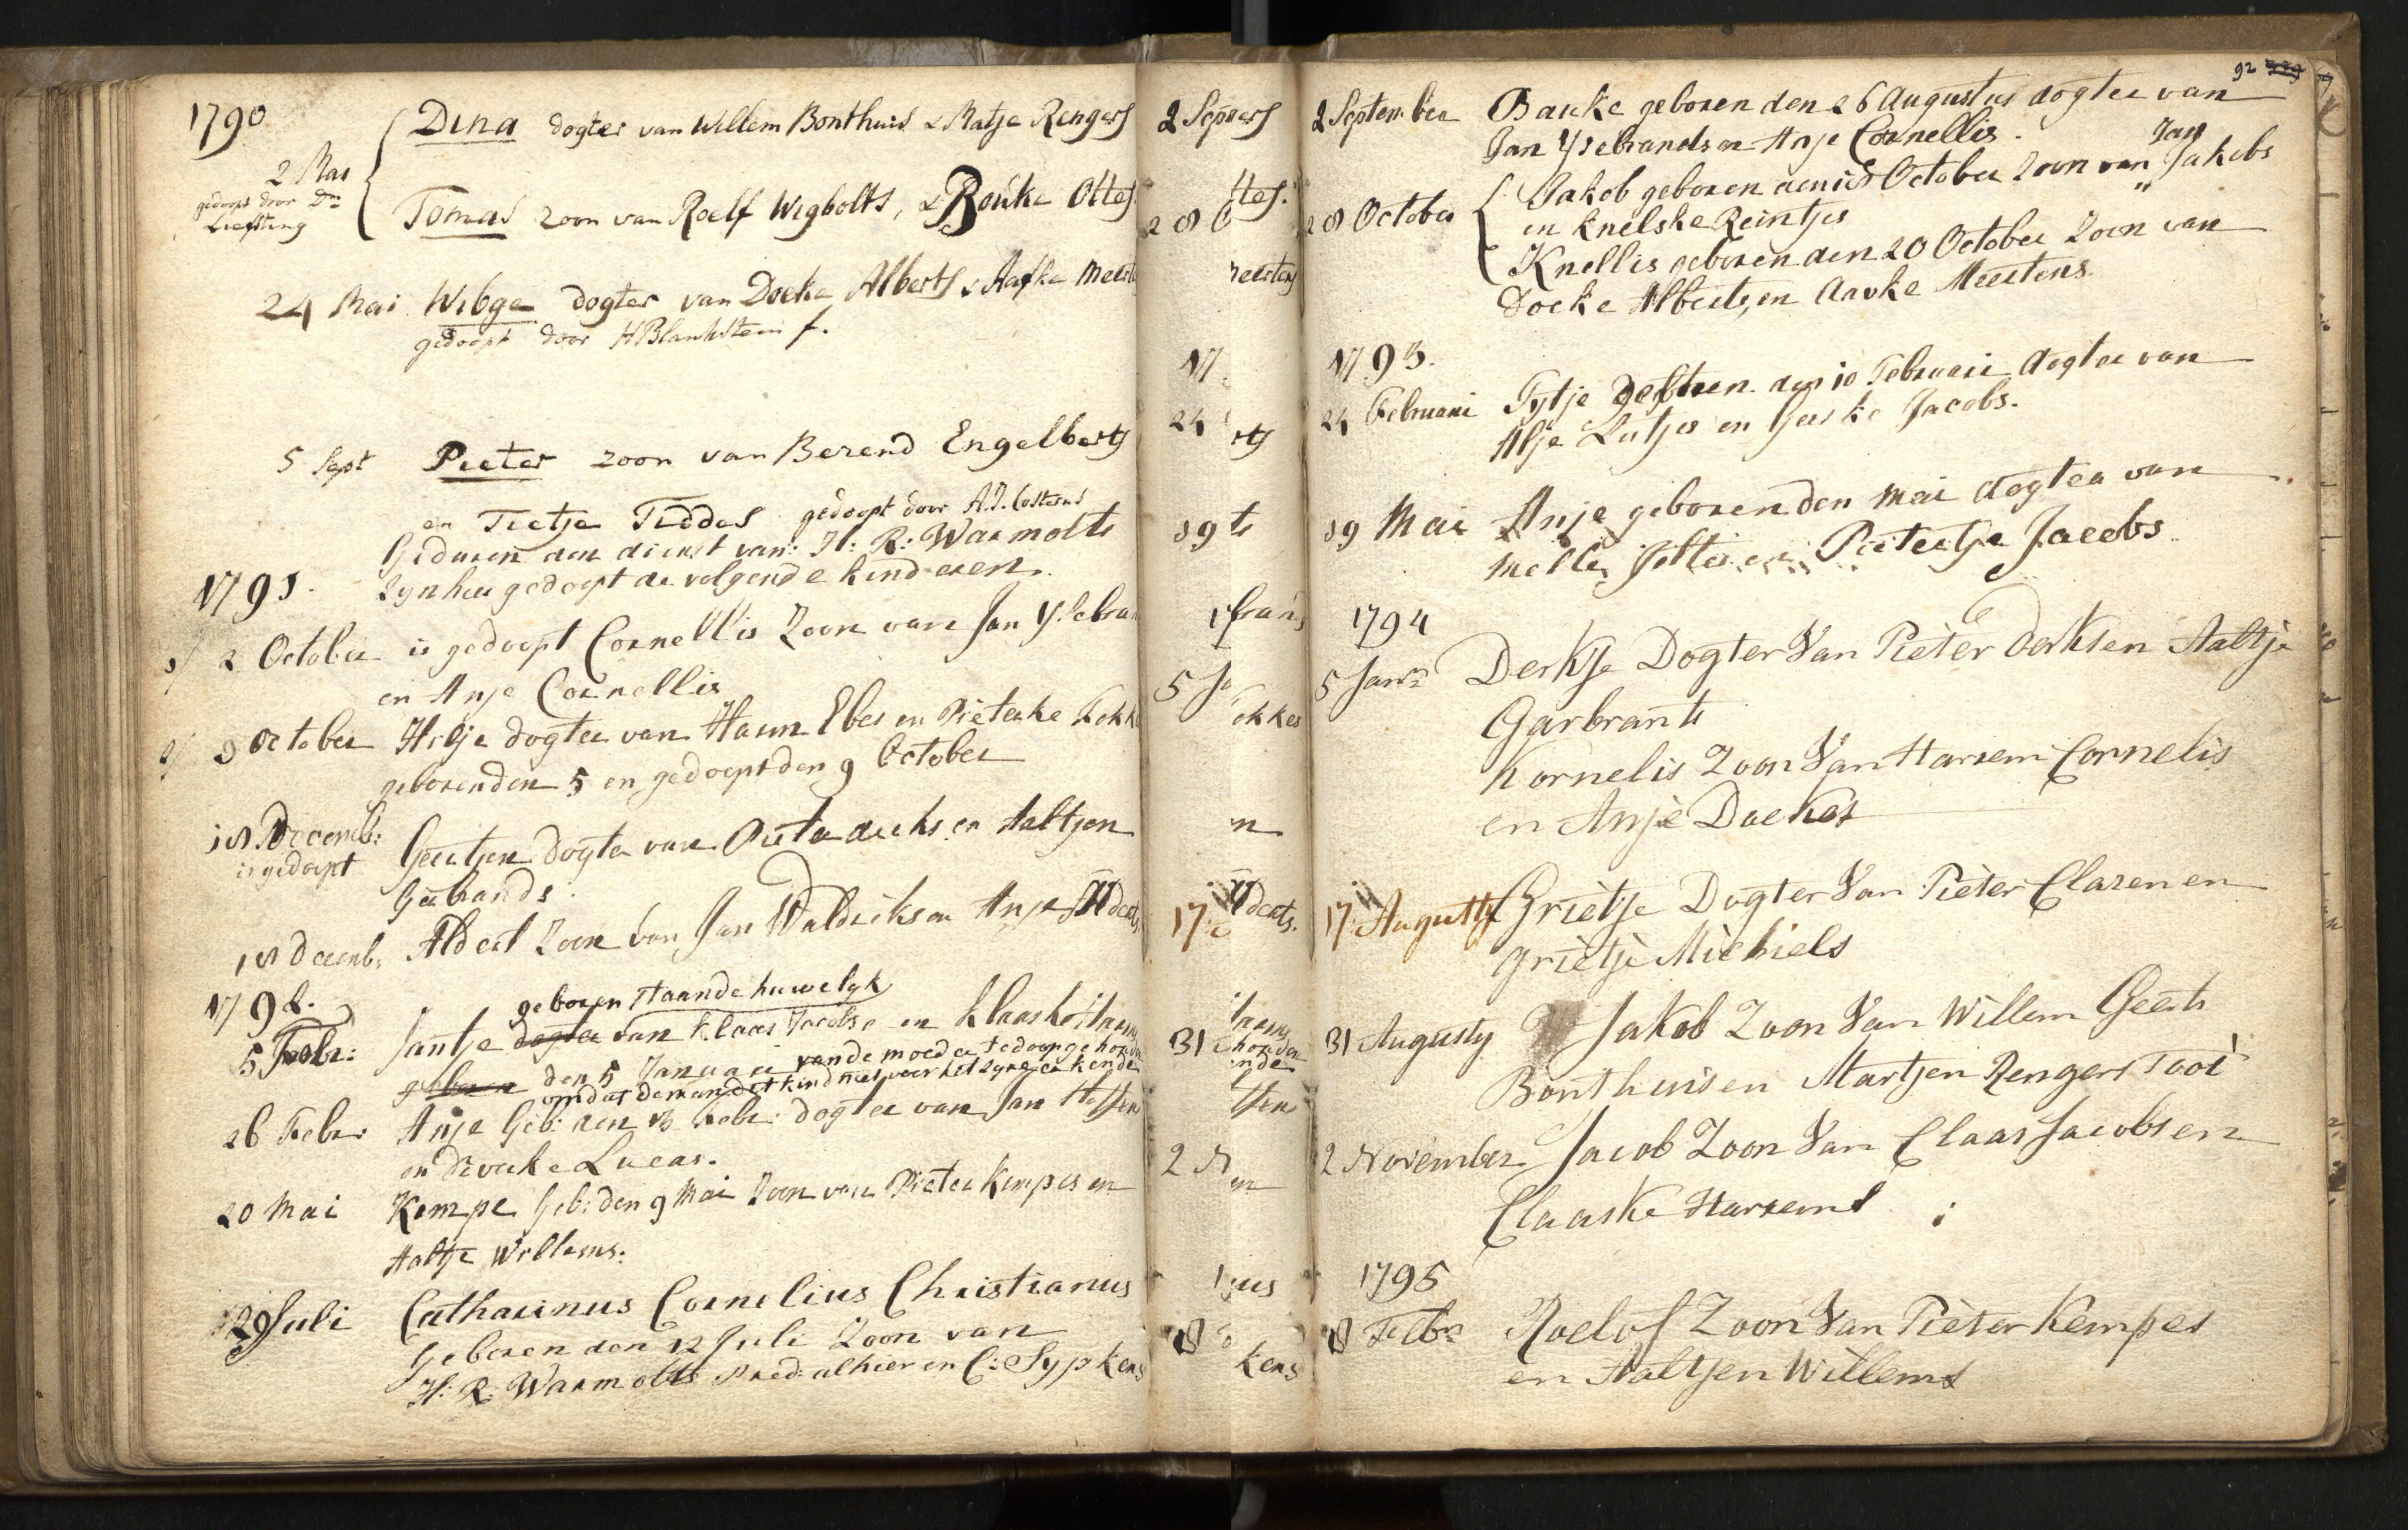 1790
Dina dogter van Willem Bonthuis & Matje Rengers
2 Mai
gedoopt door Ds
Liefting
Tomas zoon van Roelf Wigbolts, & Bouke Ottes
24 Mai Wibge dogter van Doeke Alberts & Aafke Meerte
gedoopt door H Blankstein f.
5 Sept Pieter zoon van Berend Engelberts
en Tietje Tiddes gedoopt door A. J. Costerus
Geduren den dienst van: H: R: Warmolts
1791. Zyn hier gedoopt de volgende kinderen.
2 October is gedoopt Cornellis Zoon van Jan Ysebran
en Anje Cornellis
9 October Hilje dogter van Harm Ebes en Pieterke Fokk
geboren den 5 en gedoopt den 9 October
18 Decemb: Geertjen dogter van Pieter derks en Aaltjen
is gedoopt
Gerbrands.
18 Decemb: Aldert Zoon van Jan Waldriks en Anje Alderts.
1792.
geboren staande huwelyk
5 Febr: Jantje dogter van Klaas Jacobs, en Klaaske Harms
geboren den 5 Januari van de moeder te doop gehouden
omdat de man dit kind niet voor het zyne erkende
26 Febr: Anje Geb: den 13 Febr: dogter van Jan
en Lucas.
20 Mai Kempe Geb: den 9 Mai Zoon van Pieter Kempes en
Aaltje Willems.
29 Juli Catharinus Cornelius Christianus
Geboren den 12 Juli Zoon van
H: R: Warmolts Pred: alhier en C: Sypkens
2 September Bauke geboren den 26 Augustus dogter van
Jan Ysebrands en Anje Cornellis.
Jan
28 October Jakob geboren den 18 October Zoon van Jakobs
en Knelske Reintjes
Knellis geboren den 20 October Zoon van
Doeke Alberts, en Aavke Meertens
1793.
24 Februari Tytje geboren den 10 Februari dogter van
Alje Lutjes en Geeske Jacobs.
19 Mai Anje geboren den Mai dogter van
Melle Jelties en Pietertje Jacobs
1794
5 Janr Derkje Dogter Van Pieter Derks en Aaltje
Garbrants
Kornelis Zoon Van Harrem Cornelis
en Anje Doekes
17 Augusty Grietje Dogter Van Pieter Clasen en
Grietje Michiels
31 Augusty Jakob Zoon Van Willem Geerts
Bonthuis en Martjen Rengers Tooi
2 November Jacob Zoon Van Claas Jacobs en
Claaske Harrems
1795
18 Febr Roelof Zoon Van Pieter Kempes
en Aaltjen Willems
92